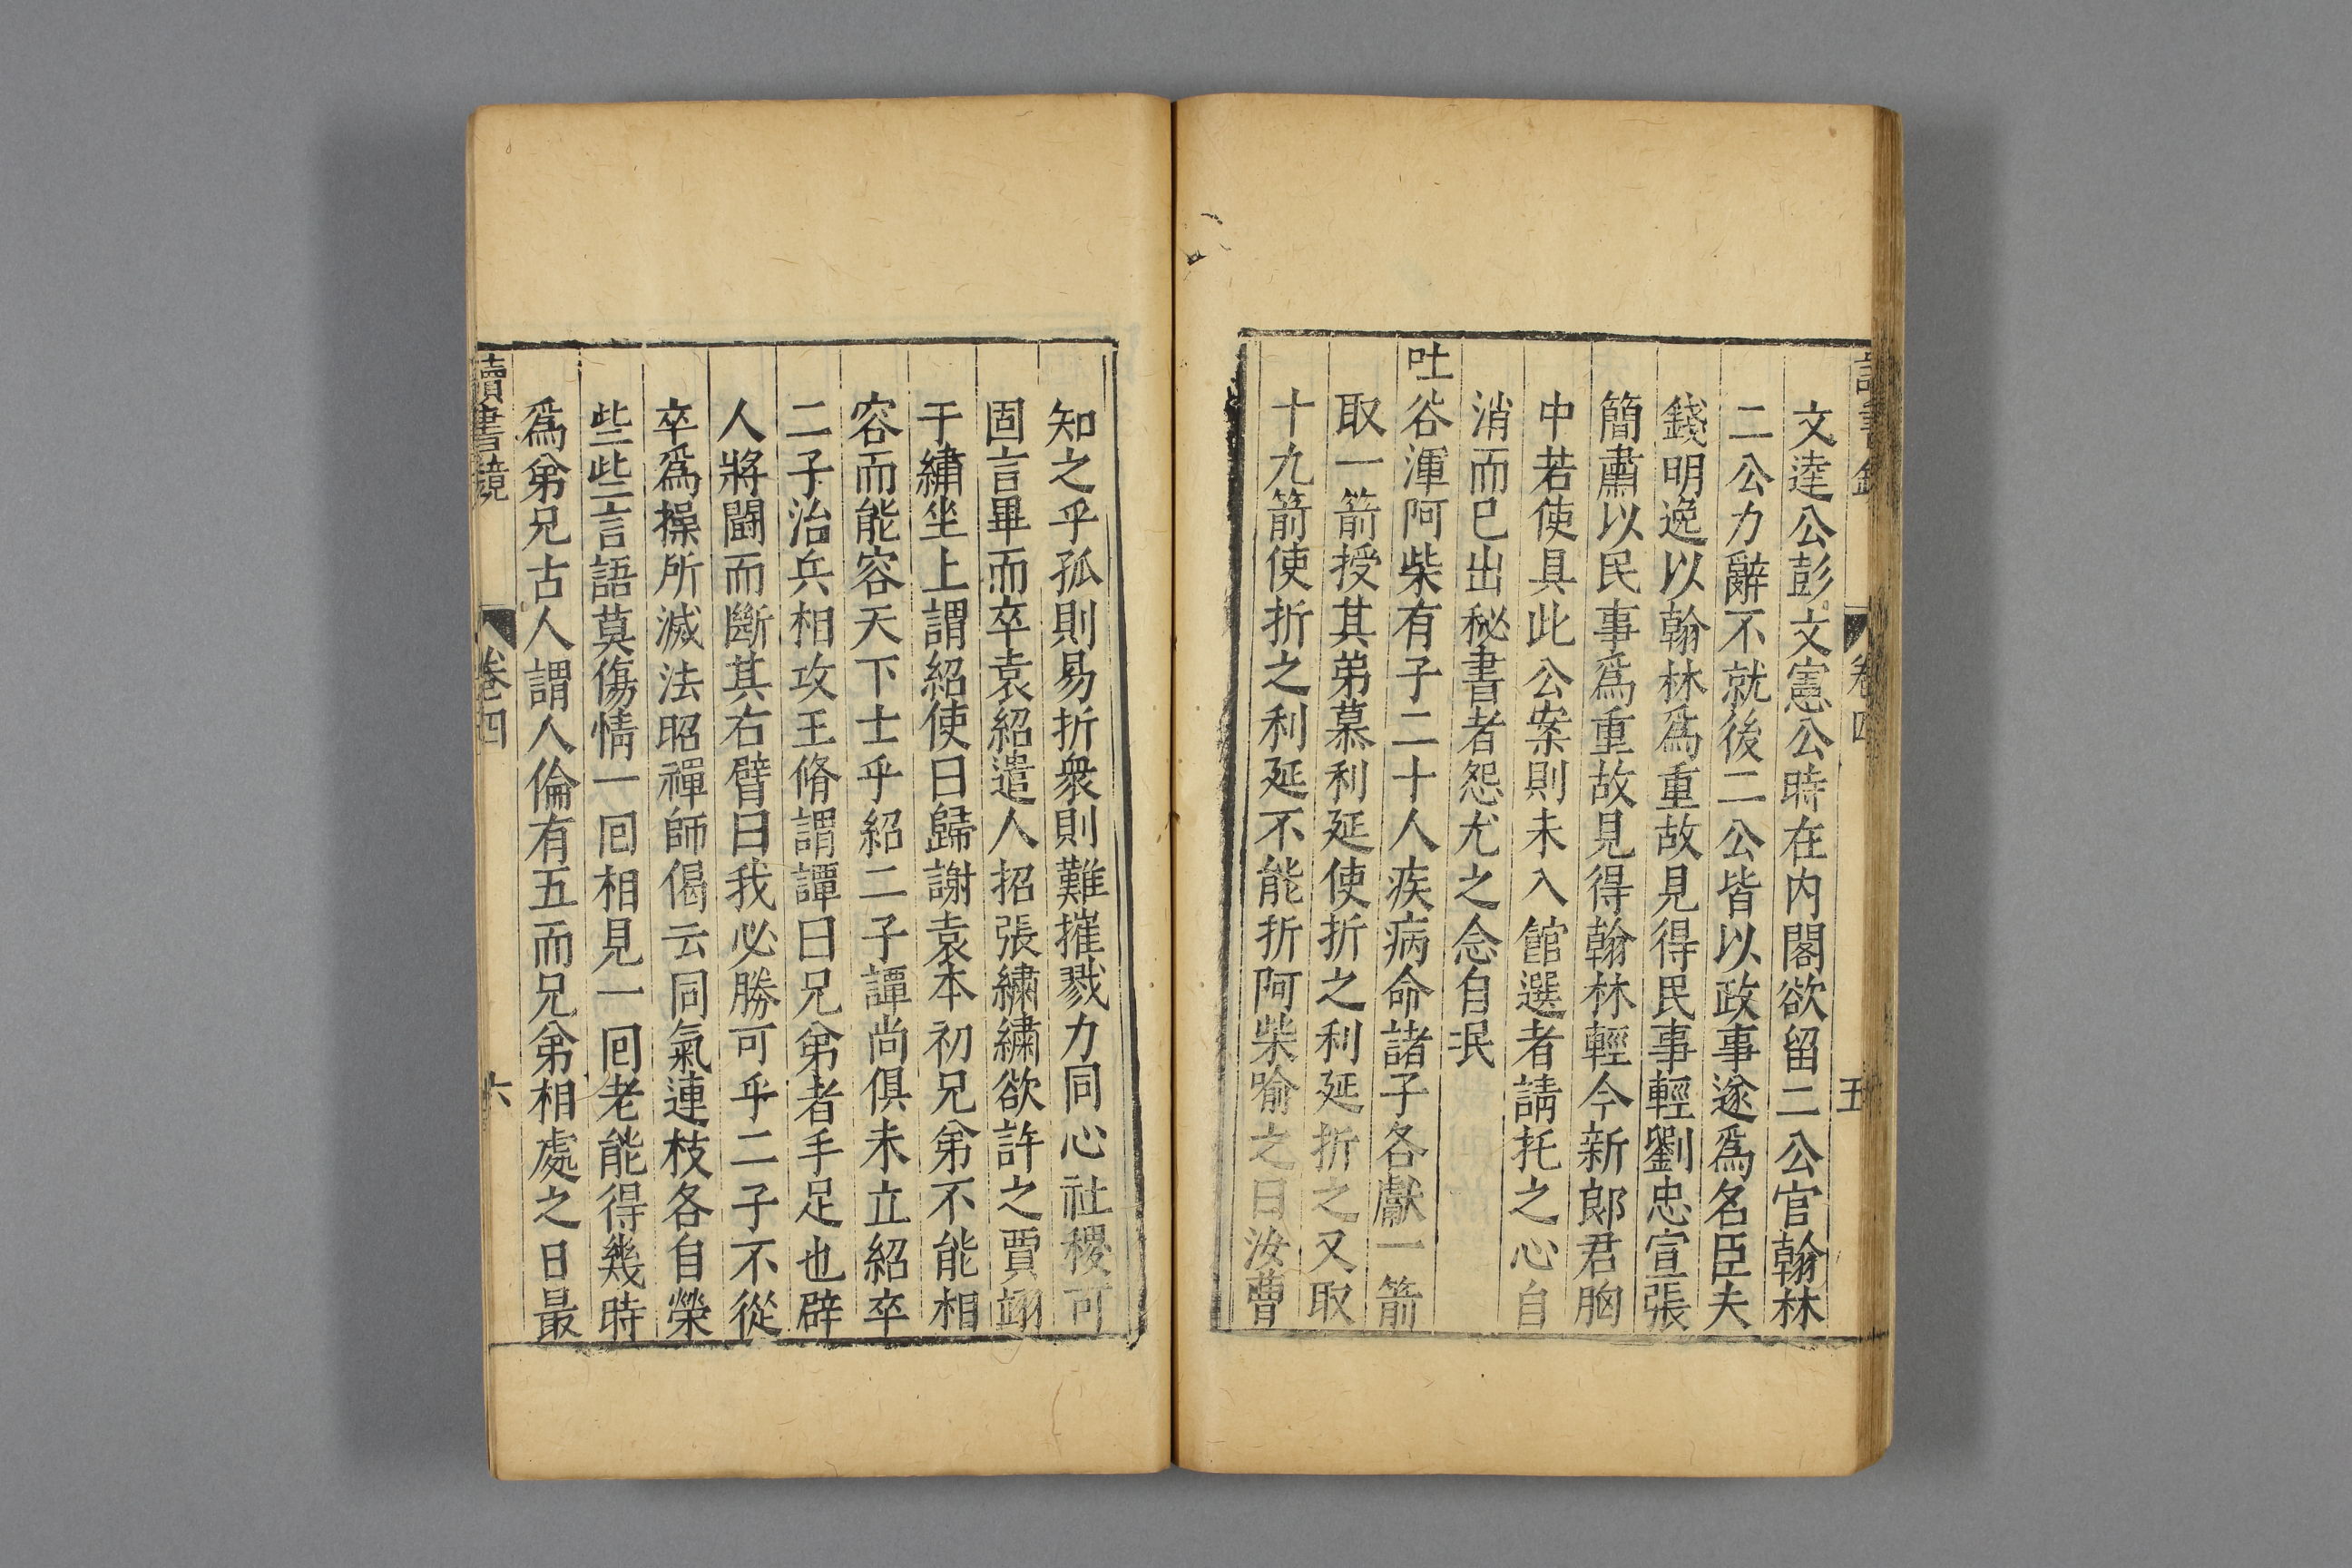 讀書鏡 卷四 五
文達公彭文憲公時在内閣欲留二公官翰林
二公力辭不就後二公皆以政事遂爲名臣夫
錢明逸以翰林爲重故見得民事輕劉忠宣張
簡肅以民事爲重故見得翰林輕今新郎君胸
中若使具此公案則未入館選者請托之心自
消而已出秘書者怨尤之念自泯
吐谷渾阿柴有子二十人疾病命諸子各獻一箭
取一箭授其弟慕利延使折之利延折之又取
十九箭使折之利延不能折阿柴喻之曰汝曹
知之乎孤則易折衆則難摧戮力同心社稷可
固言畢而卒袁紹遣人招張繡繡欲許之賈詡
于繡坐上謂紹使曰歸謝袁本初兄弟不能相
容而能容天下士乎紹二子譚尚俱未立紹卒
二子治兵相攻王脩謂譚曰兄弟者手足也辟
人將鬪而斷其右臂曰我必勝可乎二子不從
卒爲操所滅法昭禪師偈云同氣連枝各自榮
些些言語莫傷情一回相見一回老能得幾時
爲弟兄古人謂人倫有五而兄弟相處之日最
讀書鏡 卷四 六